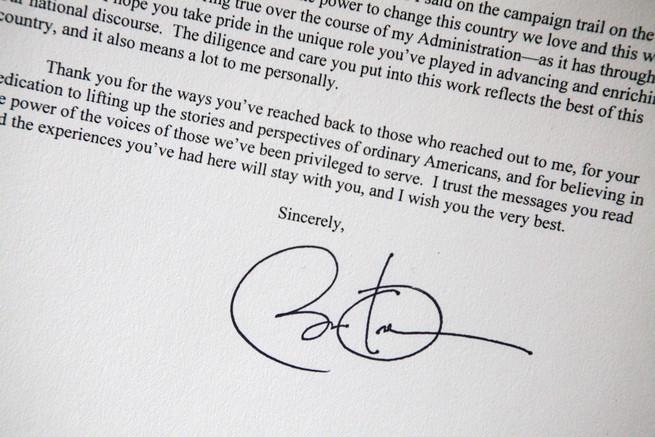 said on the campaign trail on the
true over the course of power to change this country we love and this w
national discourse. hope you take pride in the unique role you've played in advancing and enrichi
my Administration—as it has through
country, and it also means a lot to me personally. The diligence and care you put into this work reflects the best of this
Thank you for the ways you've reached back to those who reached out to me, for your
edication to lifting up the stories and perspectives of ordinary Americans, and for believing in
e power of the voices of those we've been privileged to serve. I trust the messages you read
d the experiences you've had here will stay with you, and I wish you the very best.
Sincerely,